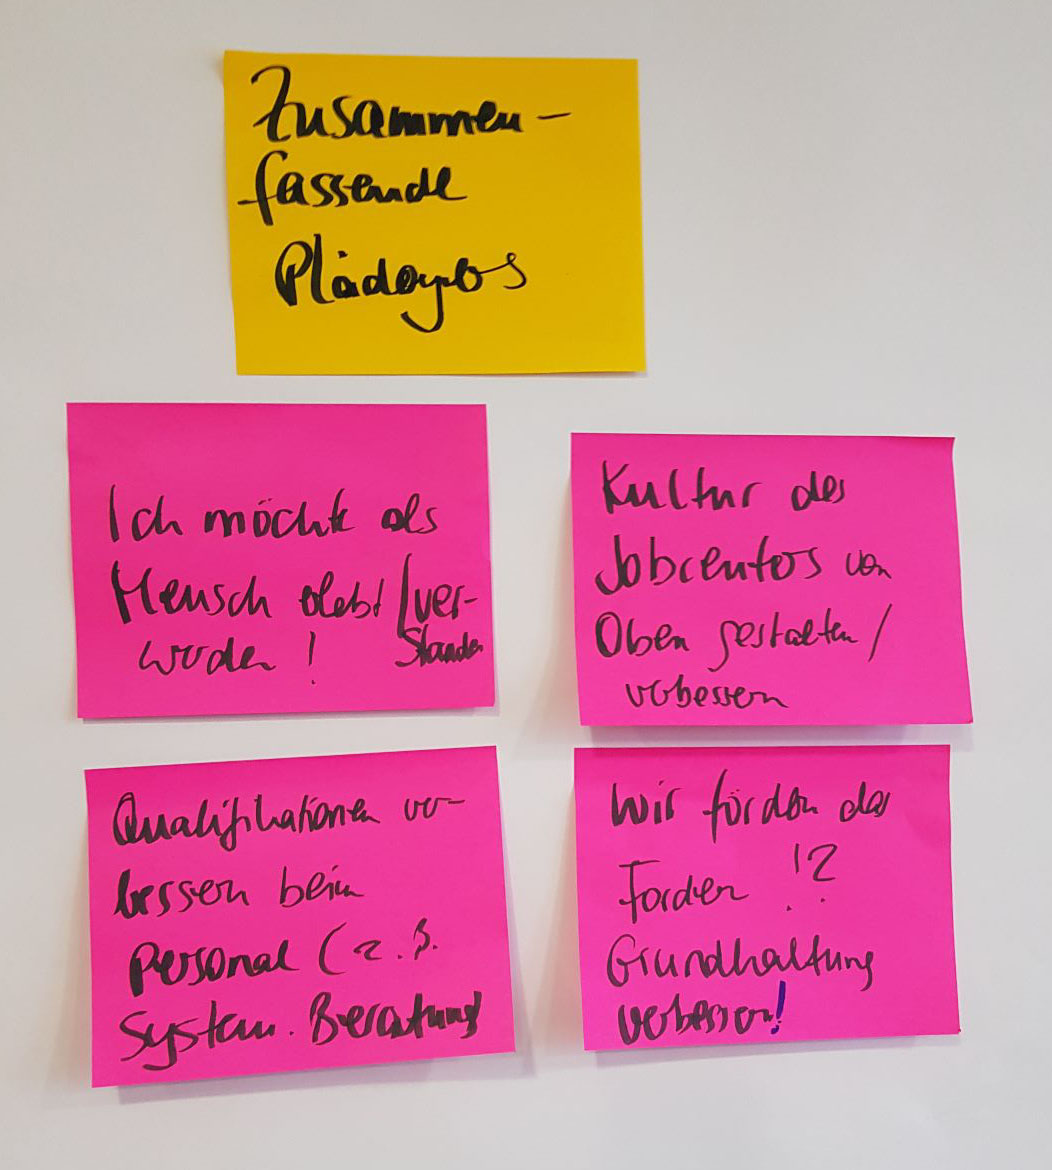 Zusammen-
fassende
Plädoyers
Ich möchte als
Mensch erlebt /ver-
standen
werden !
Kultur des
Jobcenters von
Oben gestalten /
verbessern
Qualifikationen ver-
bessern beim
Personal (z.B.
System. Beratung)
Wir fördern das
Fordern !?
Grundhaltung
verbessern!